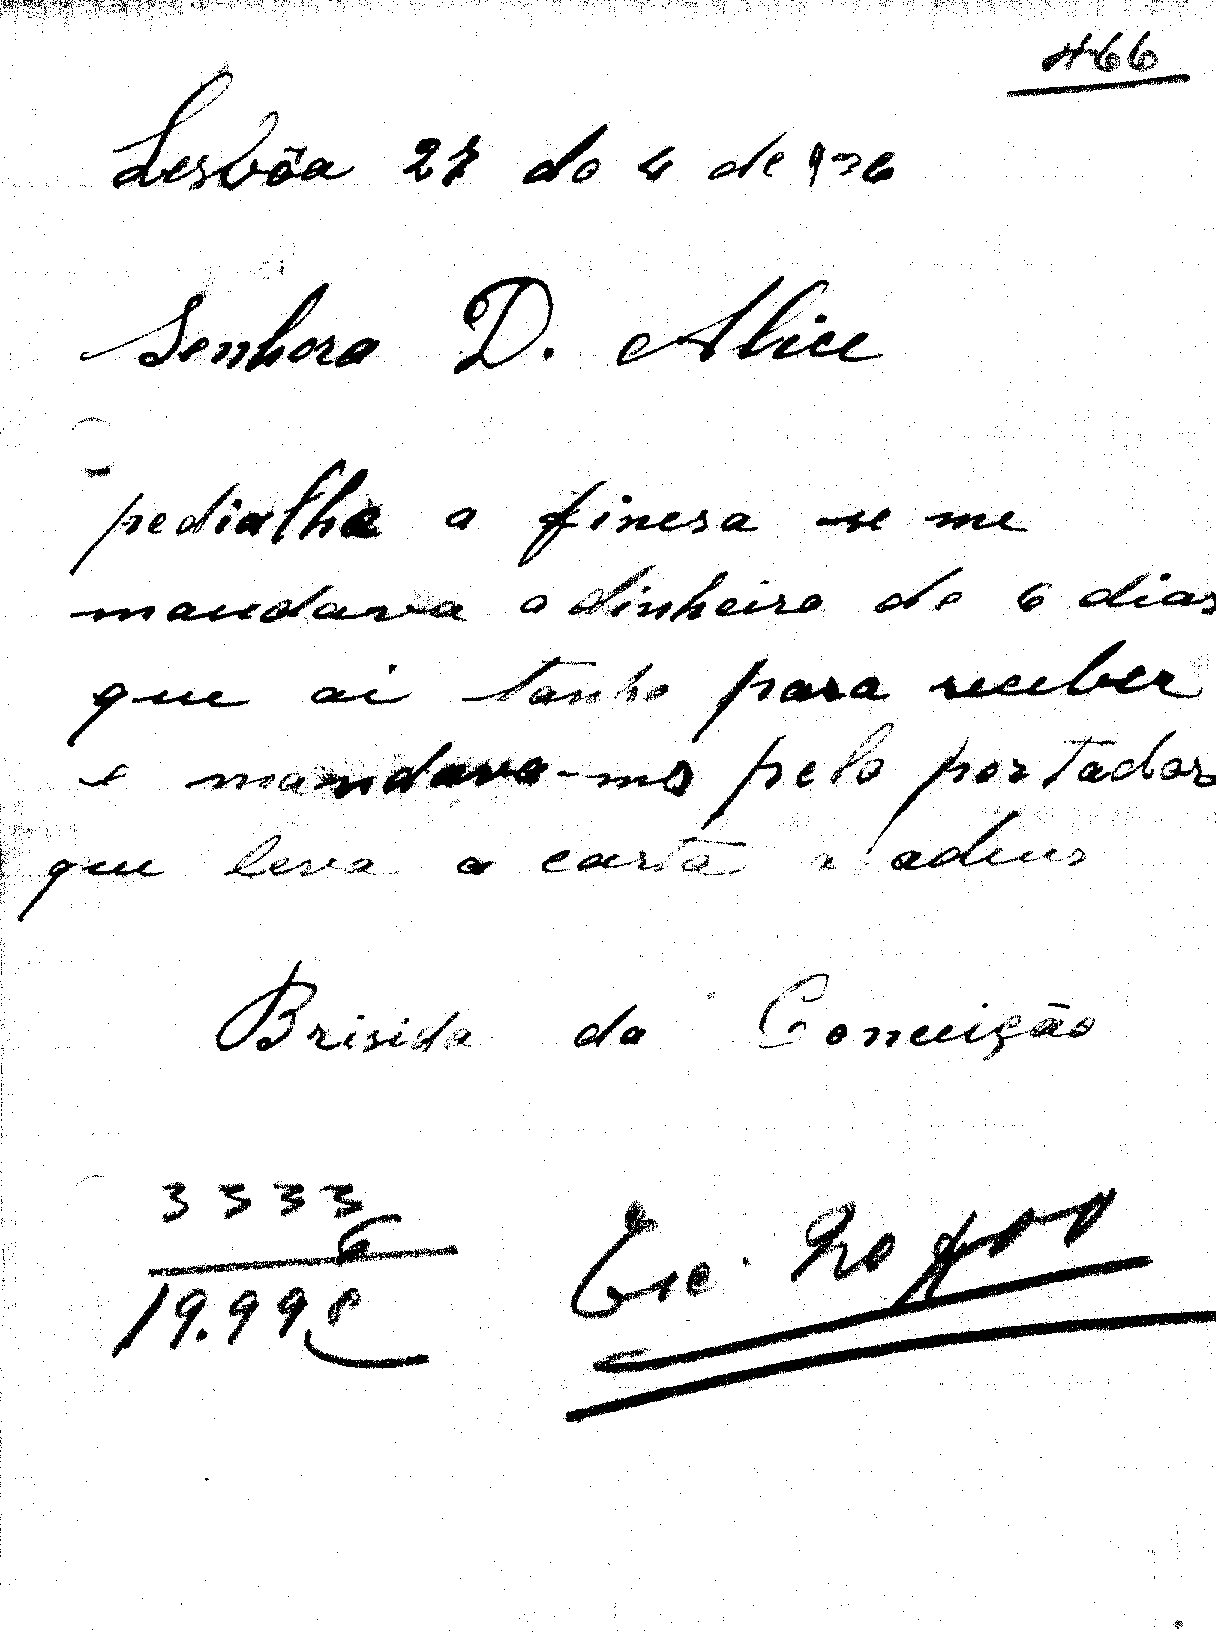 466
Lesbôa 27 do 4 de 936
Senhora D. Alice
pedialhe a finesa se me
mandava o dinheiro de 6 dias
que ai tanho para receber
e mandava-mo pelo portador
que leva a carta adeus
Brisida da Conceição
3333
6
19.998
Esc. 20$00